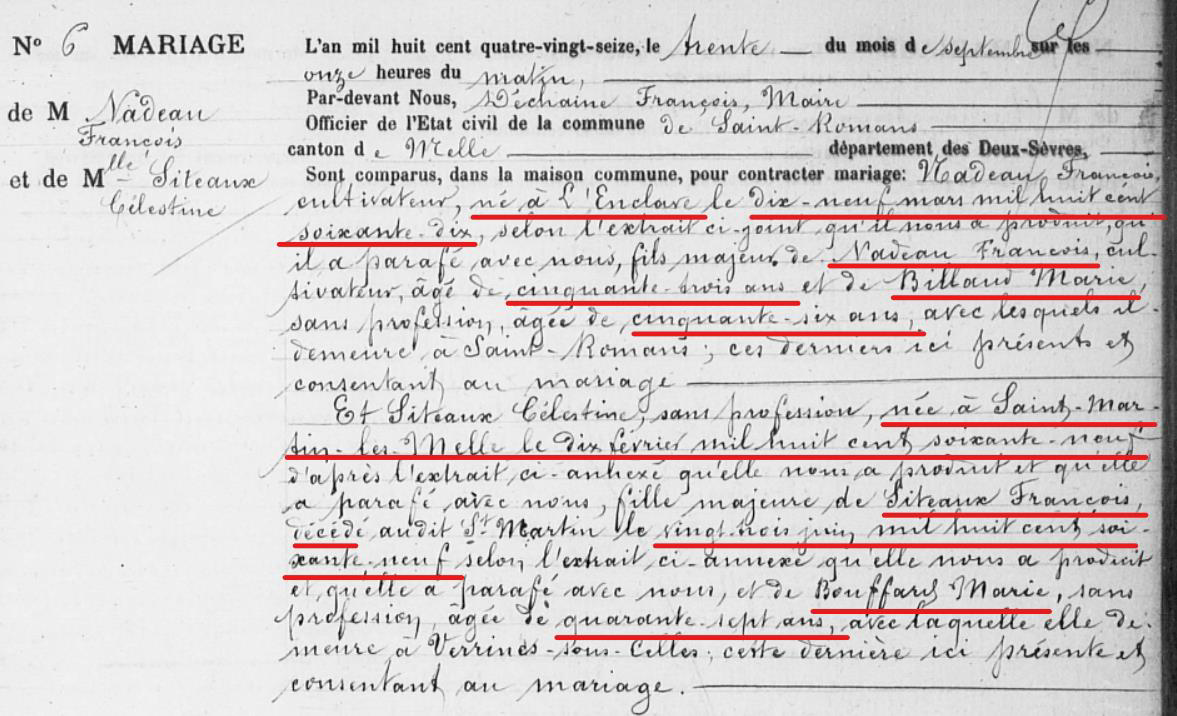 N° 6 MARIAGE
de M Nadeau
François
et de M^lle Siteaux
Célestine
L'an mil huit cent quatre-vingt-seize, le trente du mois de septembre sur les
onze heures du matin,
Par-devant Nous, Déchaine François, Maire
Officier de l'Etat civil de la commune de Saint-Romans
canton de Melle département des Deux-Sèvres,
Sont comparus, dans la maison commune, pour contracter mariage: Nadeau François,
cultivateur, né à L'Enclave le dix-neuf mars mil huit cent
soixante-dix, selon l'extrait ci-joint qu'il nous a produit, qu'
il a parafé avec nous, fils majeur de Nadeau François, cul-
tivateur, âgé de cinquante-trois ans et de Billaud Marie,
sans profession, âgée de cinquante-six ans, avec lesquels il
demeure à Saint-Romans; ces derniers ici présents et
consentant au mariage
Et Siteaux Célestine, sans profession, née à Saint-Mar-
tin-les-Melle le dix février mil huit cent soixante-neuf
d'après l'extrait ci-annexé qu'elle nous a produit et qu'elle
a parafé avec nous, fille majeure de Siteaux François,
décédé audit St Martin le vingt-trois juin mil huit cent soi-
xante-neuf selon l'extrait ci-annexé qu'elle nous a produit
et qu'elle a parafé avec nous, et de Bouffard Marie, sans
profession, âgée de quarante-sept ans, avec laquelle elle de-
meure à Verrines-sous-Celles; cette dernière ici présente et
consentant au mariage.